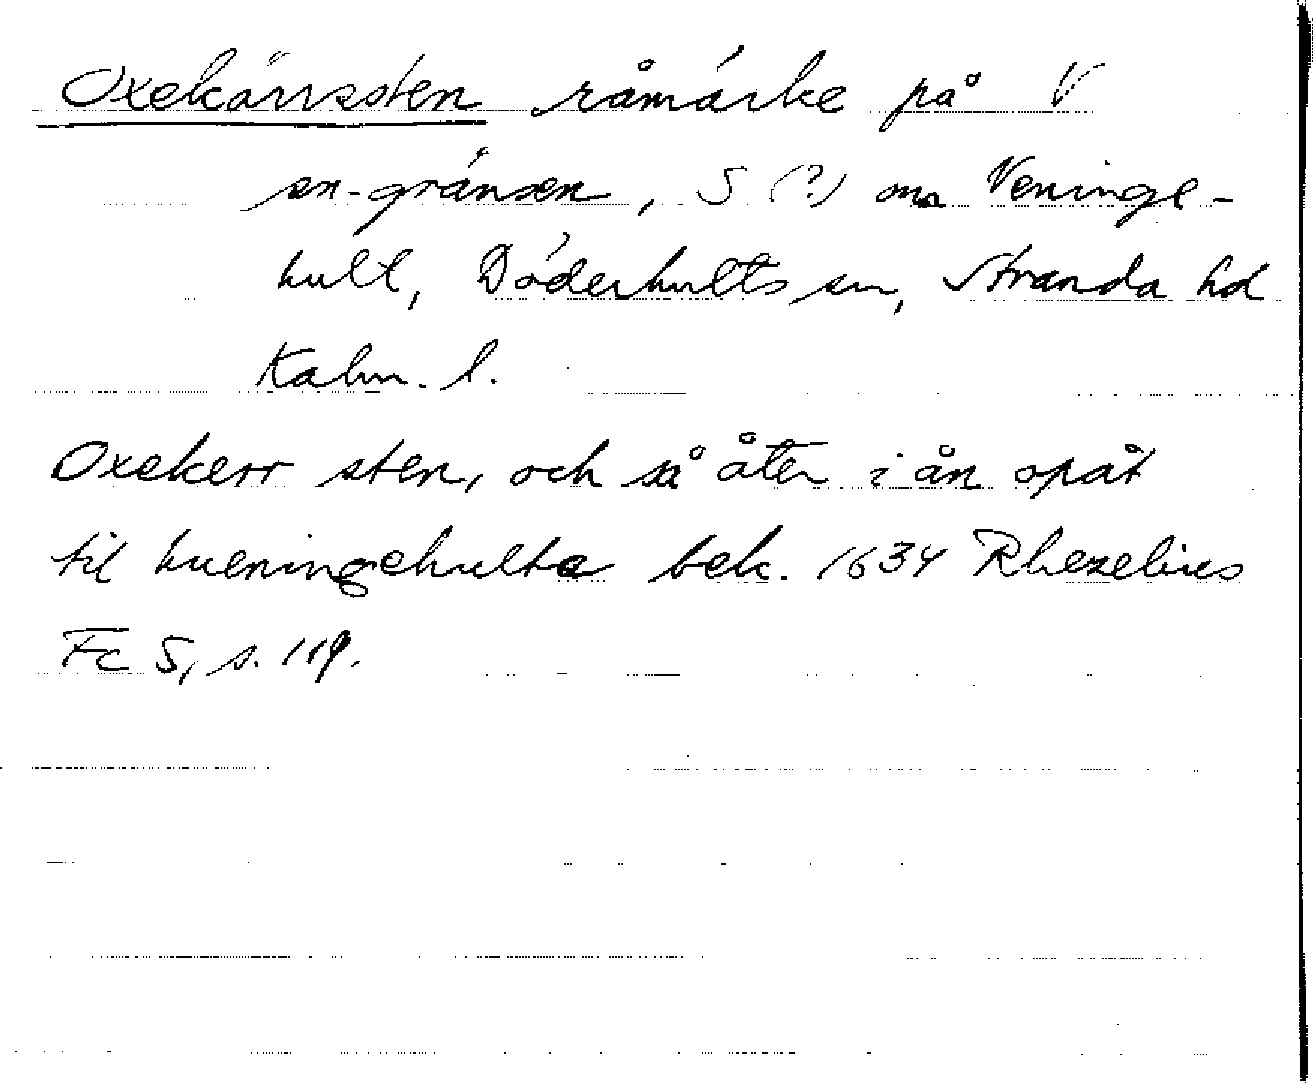 Oxekärrssten råmärke på V
sn-gränsen, S (?) om Veninge-
hult, Döderhults sn, Stranda hd
Kalm. l.
Oxekerr sten, och så åter i ån opåt
til hueningehulta bek. 1634 Rhezelius
Fc 5, s. 119.